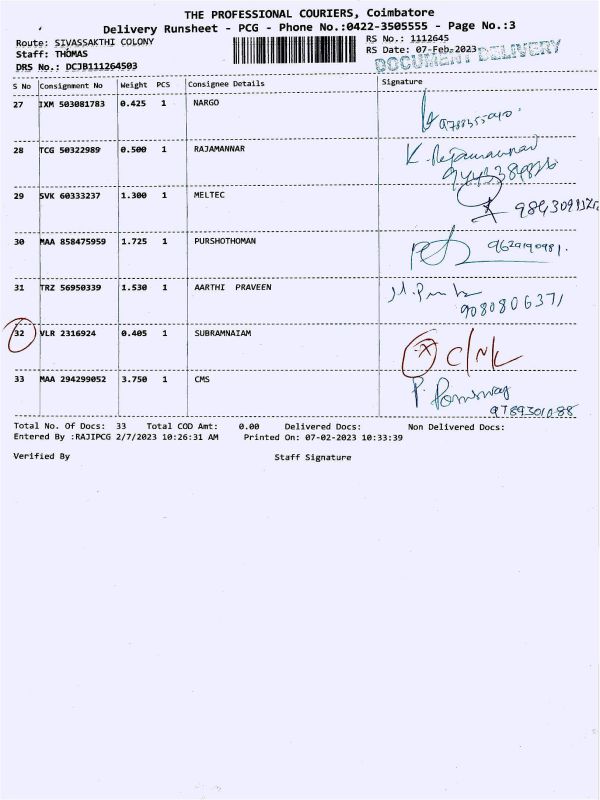 THE PROFESSIONAL COURIERS, Coimbatore
Delivery Runsheet - PCG - Phone No.:0422-3505555 - Page No.:3
Route: SIVASSAKTHI COLONY RS No.: 1112645
Staff: THOMAS RS Date: 07-Feb-2023
DOCUMENT DELIVERY
DRS No.: DCJB111264503
S No Consignment No Weight PCS Consignee Details Signature
27 IXM 503081783 0.425 1 NARGO
28 TCG 50322989 0.500 1 RAJAMANNAR K. Rajamannar
29 SVK 60333237 1.300 1 MELTEC
30 MAA 858475959 1.725 1 PURSHOTHOMAN 9629190981.
31 TRZ 56950339 1.530 1 AARTHI PRAVEEN
9080806371
32 VLR 2316924 0.405 1 SUBRAMNAIAM X C/N/L
33 MAA 294299052 3.750 1 CMS
9789301088
Total No. Of Docs: 33 Total COD Amt: 0.00 Delivered Docs: Non Delivered Docs:
Entered By :RAJIPCG 2/7/2023 10:26:31 AM Printed On: 07-02-2023 10:33:39
Verified By Staff Signature